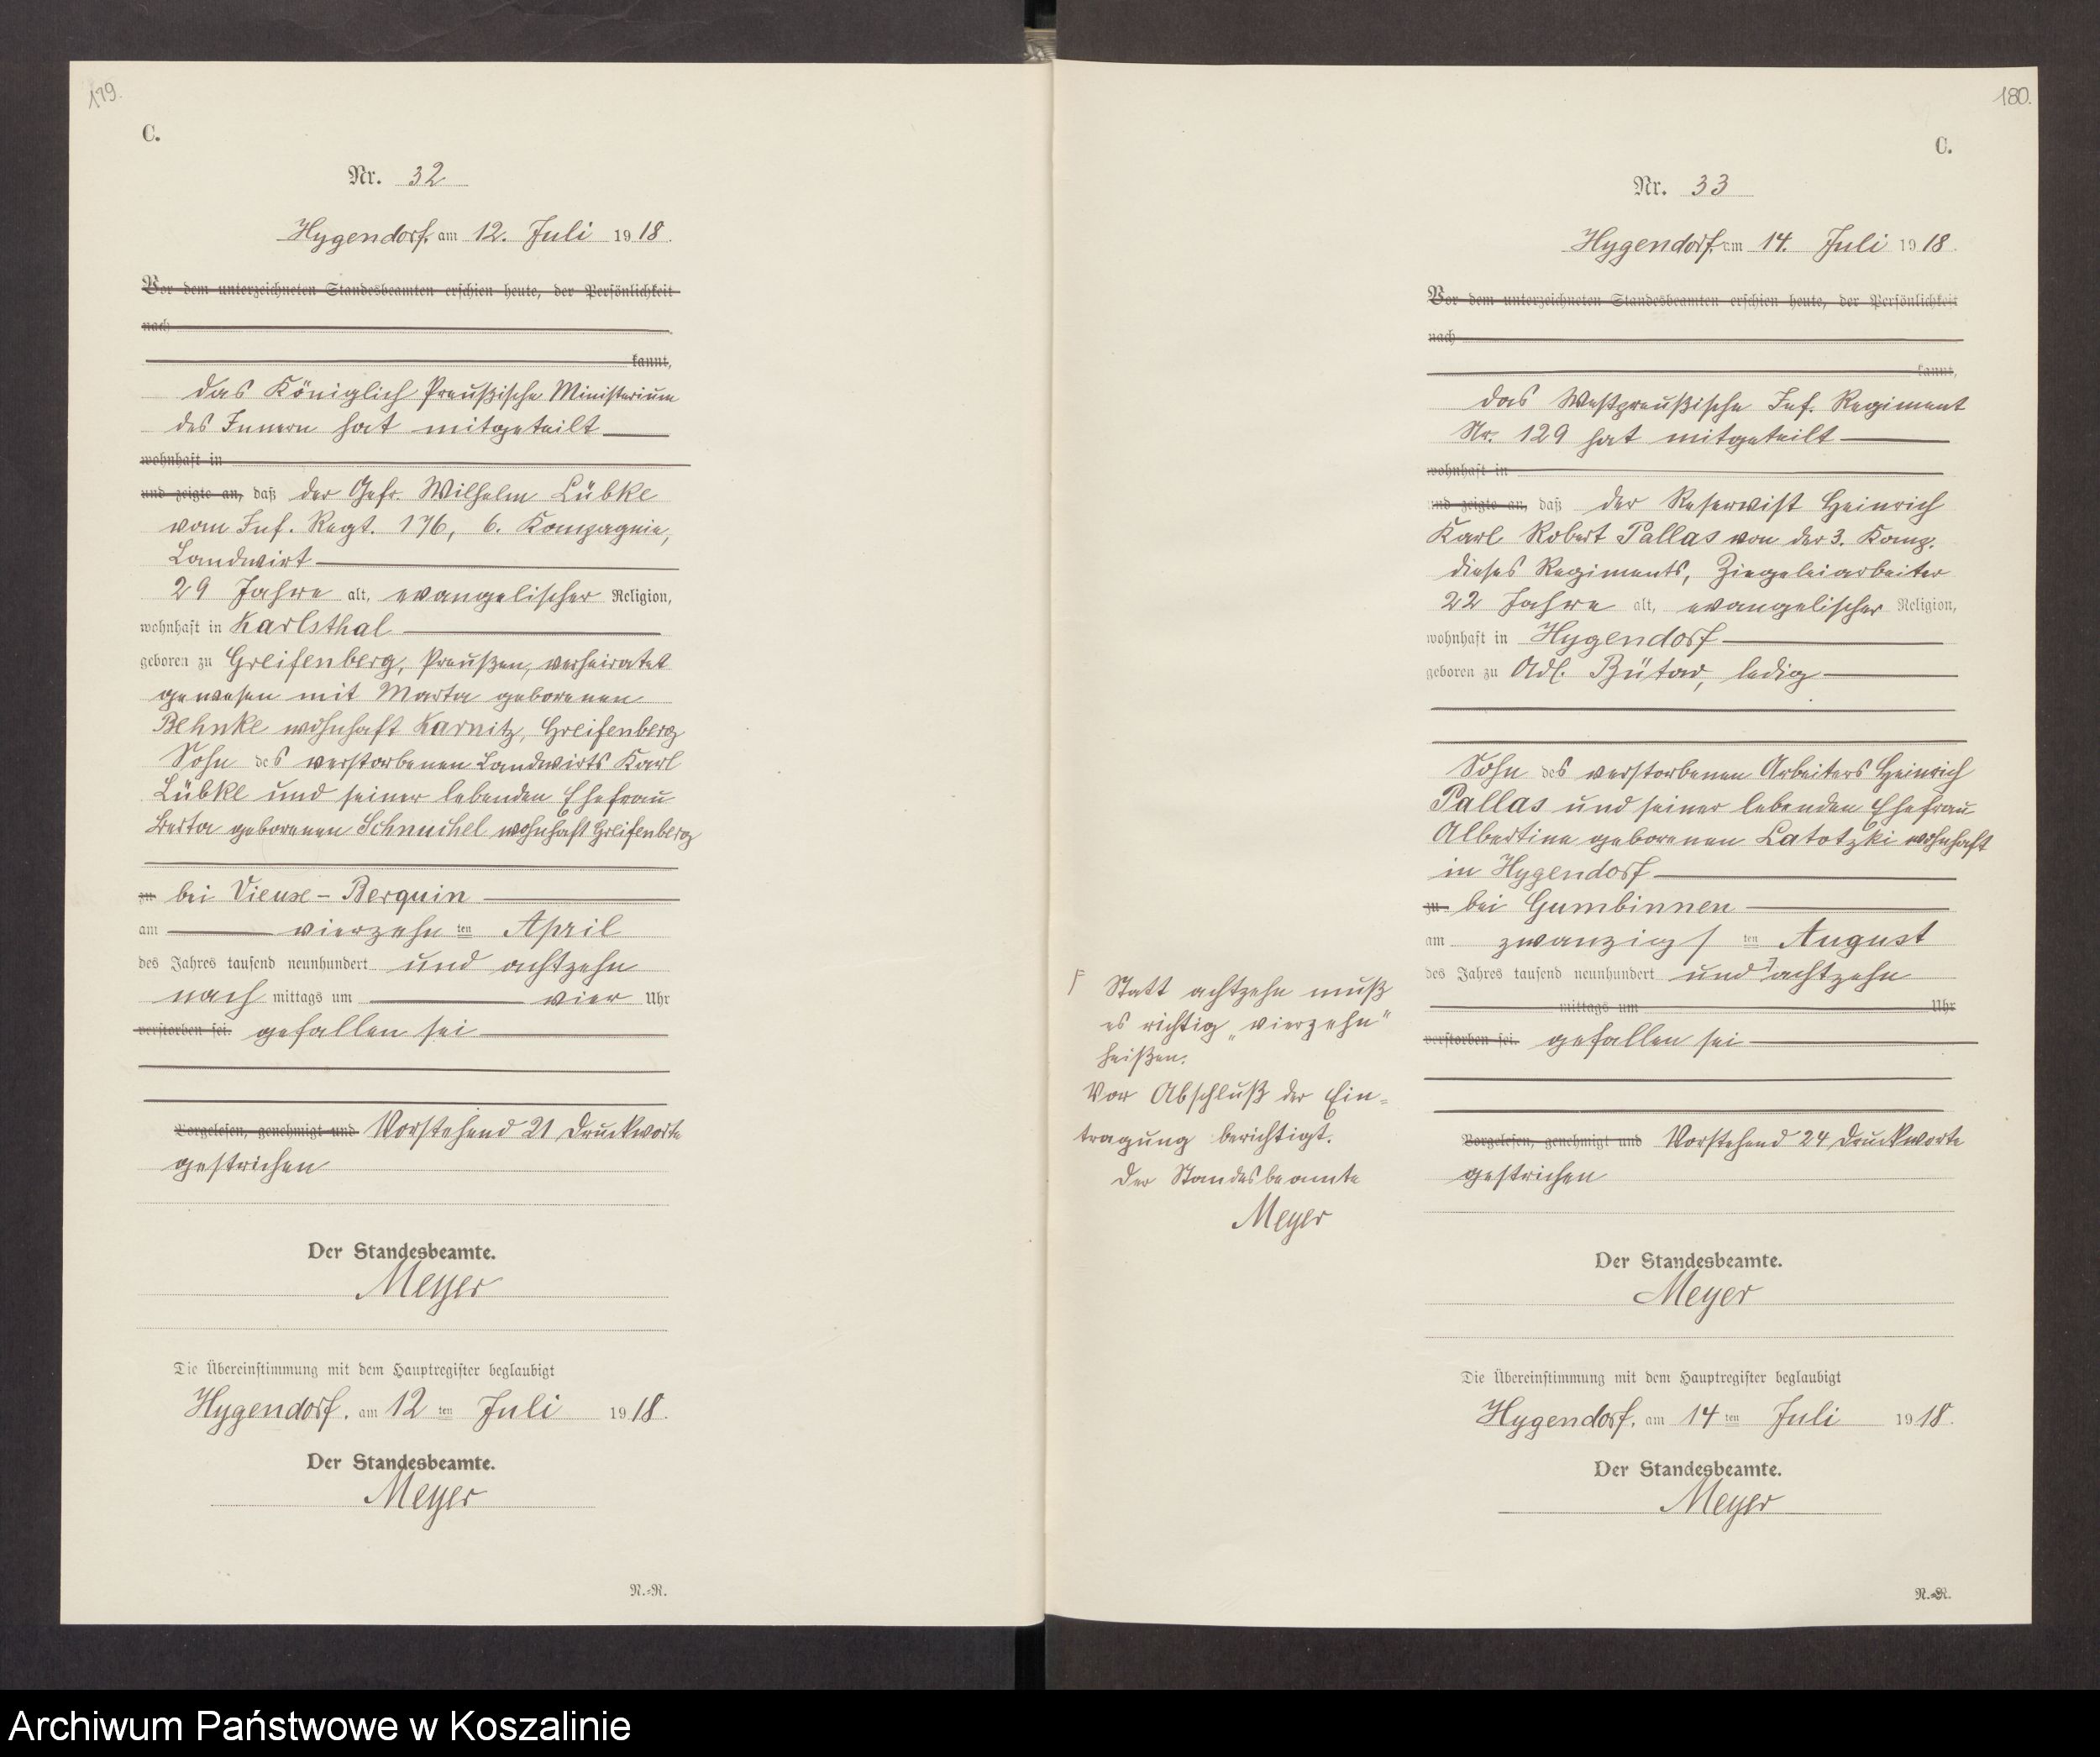 179.
C.
Nr. 32
Hygendorf, am 12. Juli 1918.
Vor dem unterzeichneten Standesbeamten erschien heute, der Persönlichkeit
nach
kannt,
das Königlich Preußische Ministerium
des Innern hat mitgeteilt
wohnhaft in
und zeigte an, daß der Gefr. Wilhelm Lübke
vom Inf. Regt. 176, 6. Kompagnie,
Landwirt
29 Jahre alt, evangelischer Religion,
wohnhaft in Karlsthal
geboren zu Greifenberg, Preußen, verheiratet
gewesen mit Marta geborenen
Behnke wohnhaft Karnitz, Greifenberg
Sohn des verstorbenen Landwirts Karl
Lübke und seiner lebenden Ehefrau
Berta geborenen Schnuchel wohnhaft Greifenberg
zu bei Vieux-Berquin
am vierzehnten April
des Jahres tausend neunhundert und achtzehn
nachmittags um vier Uhr
verstorben sei. gefallen sei
Vorgelesen, genehmigt und Vorstehend 21 Druckworte
gestrichen
Der Standesbeamte.
Meyer
Die Übereinstimmung mit dem Hauptregister beglaubigt
Hygendorf, am 12ten Juli 1918.
Der Standesbeamte.
Meyer
R.-R.
180.
C.
Nr. 33
Hygendorf, am 14. Juli 1918.
Vor dem unterzeichneten Standesbeamten erschien heute, der Persönlichkeit
nach
kannt,
das Westpreußische Inf. Regiment
Nr. 129 hat mitgeteilt
wohnhaft in
und zeigte an, daß der Reservist Heinrich
Karl Robert Pallas von der 3. Komp.
dieses Regiments, Ziegeleiarbeiter
22 Jahre alt, evangelischer Religion,
wohnhaft in Hygendorf
geboren zu Adl. Bütow, ledig
Sohn des verstorbenen Arbeiters Heinrich
Pallas und seiner lebenden Ehefrau
Albertine geborenen Latotzki wohnhaft
in Hygendorf
zu bei Gumbinnen
am zwanzigsten August
des Jahres tausend neunhundert und achtzehn
mittags um Uhr
verstorben sei. gefallen sei
Statt achtzehn muß
es richtig „vierzehn"
heißen.
Vor Abschluß der Ein=
tragung berichtigt.
Der Standesbeamte
Meyer
Vorgelesen, genehmigt und Vorstehend 24 Druckworte
gestrichen
Der Standesbeamte.
Meyer
Die Übereinstimmung mit dem Hauptregister beglaubigt
Hygendorf, am 14ten Juli 1918.
Der Standesbeamte.
Meyer
R.-R.
Archiwum Państwowe w Koszalinie